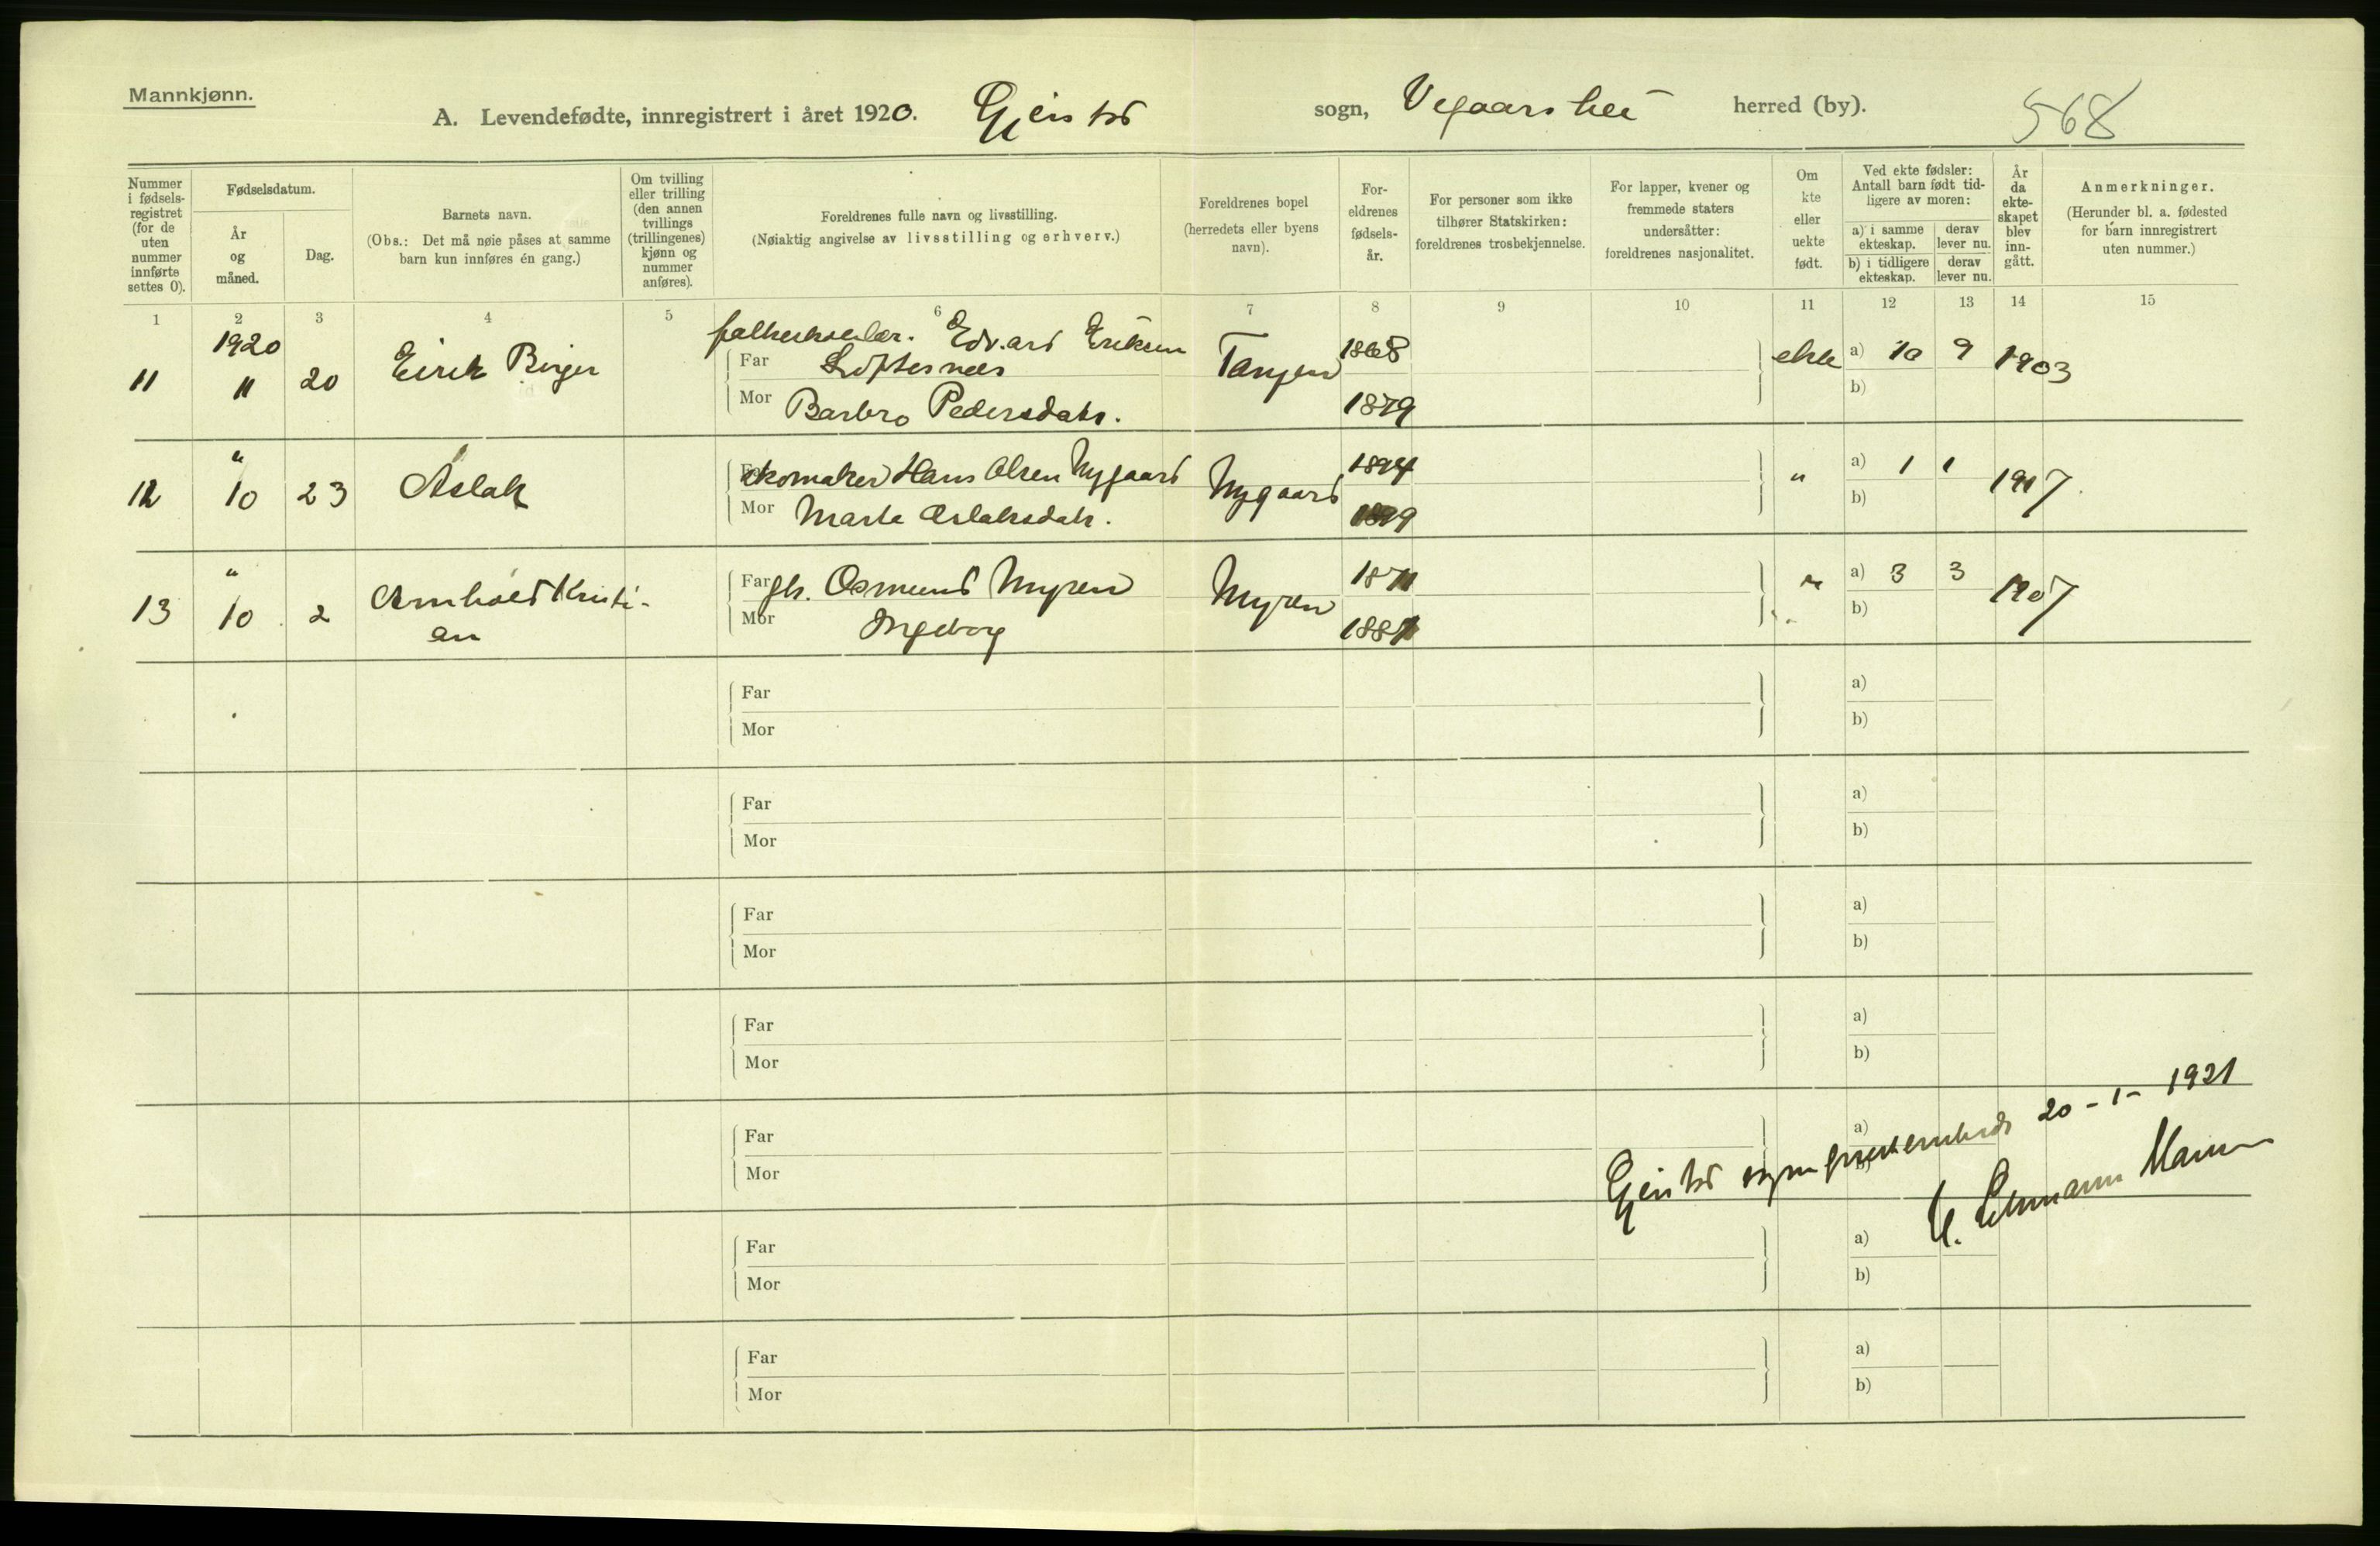 Mannkjønn.
A. Levendefødte, innregistrert i året 1920. Gjerstad sogn, Vegaarshei herred (by). 568
Nummer i fødselsregistret (for de uten nummer innførte settes 0).
Fødselsdatum.
År og måned.
Dag.
Barnets navn.
(Obs.: Det må nøie påses at samme barn kun innføres én gang.)
Om tvilling eller trilling (den annen tvillings (trillingenes) kjønn og nummer anføres).
Foreldrenes fulle navn og livsstilling.
(Nøiaktig angivelse av livsstilling og erhverv.)
Foreldrenes bopel
(herredets eller byens navn).
Foreldrenes fødselsår.
For personer som ikke tilhører Statskirken: foreldrenes trosbekjennelse.
For lapper, kvener og fremmede staters undersåtter: foreldrenes nasjonalitet.
Om kte eller uekte født.
Ved ekte fødsler: Antall barn født tidligere av moren:
a) i samme ekteskap.
derav lever nu.
b) i tidligere ekteskap.
derav lever nu.
År da ekteskapet blev inngått.
Anmerkninger.
(Herunder bl. a. fødested for barn innregistrert uten nummer.)
1 2 3 4 5 6 7 8 9 10 11 12 13 14 15
1920 Edvard Eriksen 1868
11 11 20 Eirik Birger Far Løftesnes Tangen ekte a) 10 9 1903
Mor Barbro Pedersdatr. 1879 b)
" Far skomaker Hans Olsen Nygaard 1894 a) 1 1
12 10 23 Aslak Nygaard " 1917
Mor Marte Aslaksdatr. 1899 b)
" Far gbr. Osmund Myren 1871 a) 3 3
13 10 2 Arnhold Kristi- Myren " 1907
an Mor Ingeborg 1887 b)
Far a)
Mor b)
Far a)
Mor b)
Far a)
Mor b)
Far a)
Mor b)
Far a)
Mor b)
Far a)
Mor b)
Far a)
Mor b)
Gjerstad sogneprestembede 20-1-1921